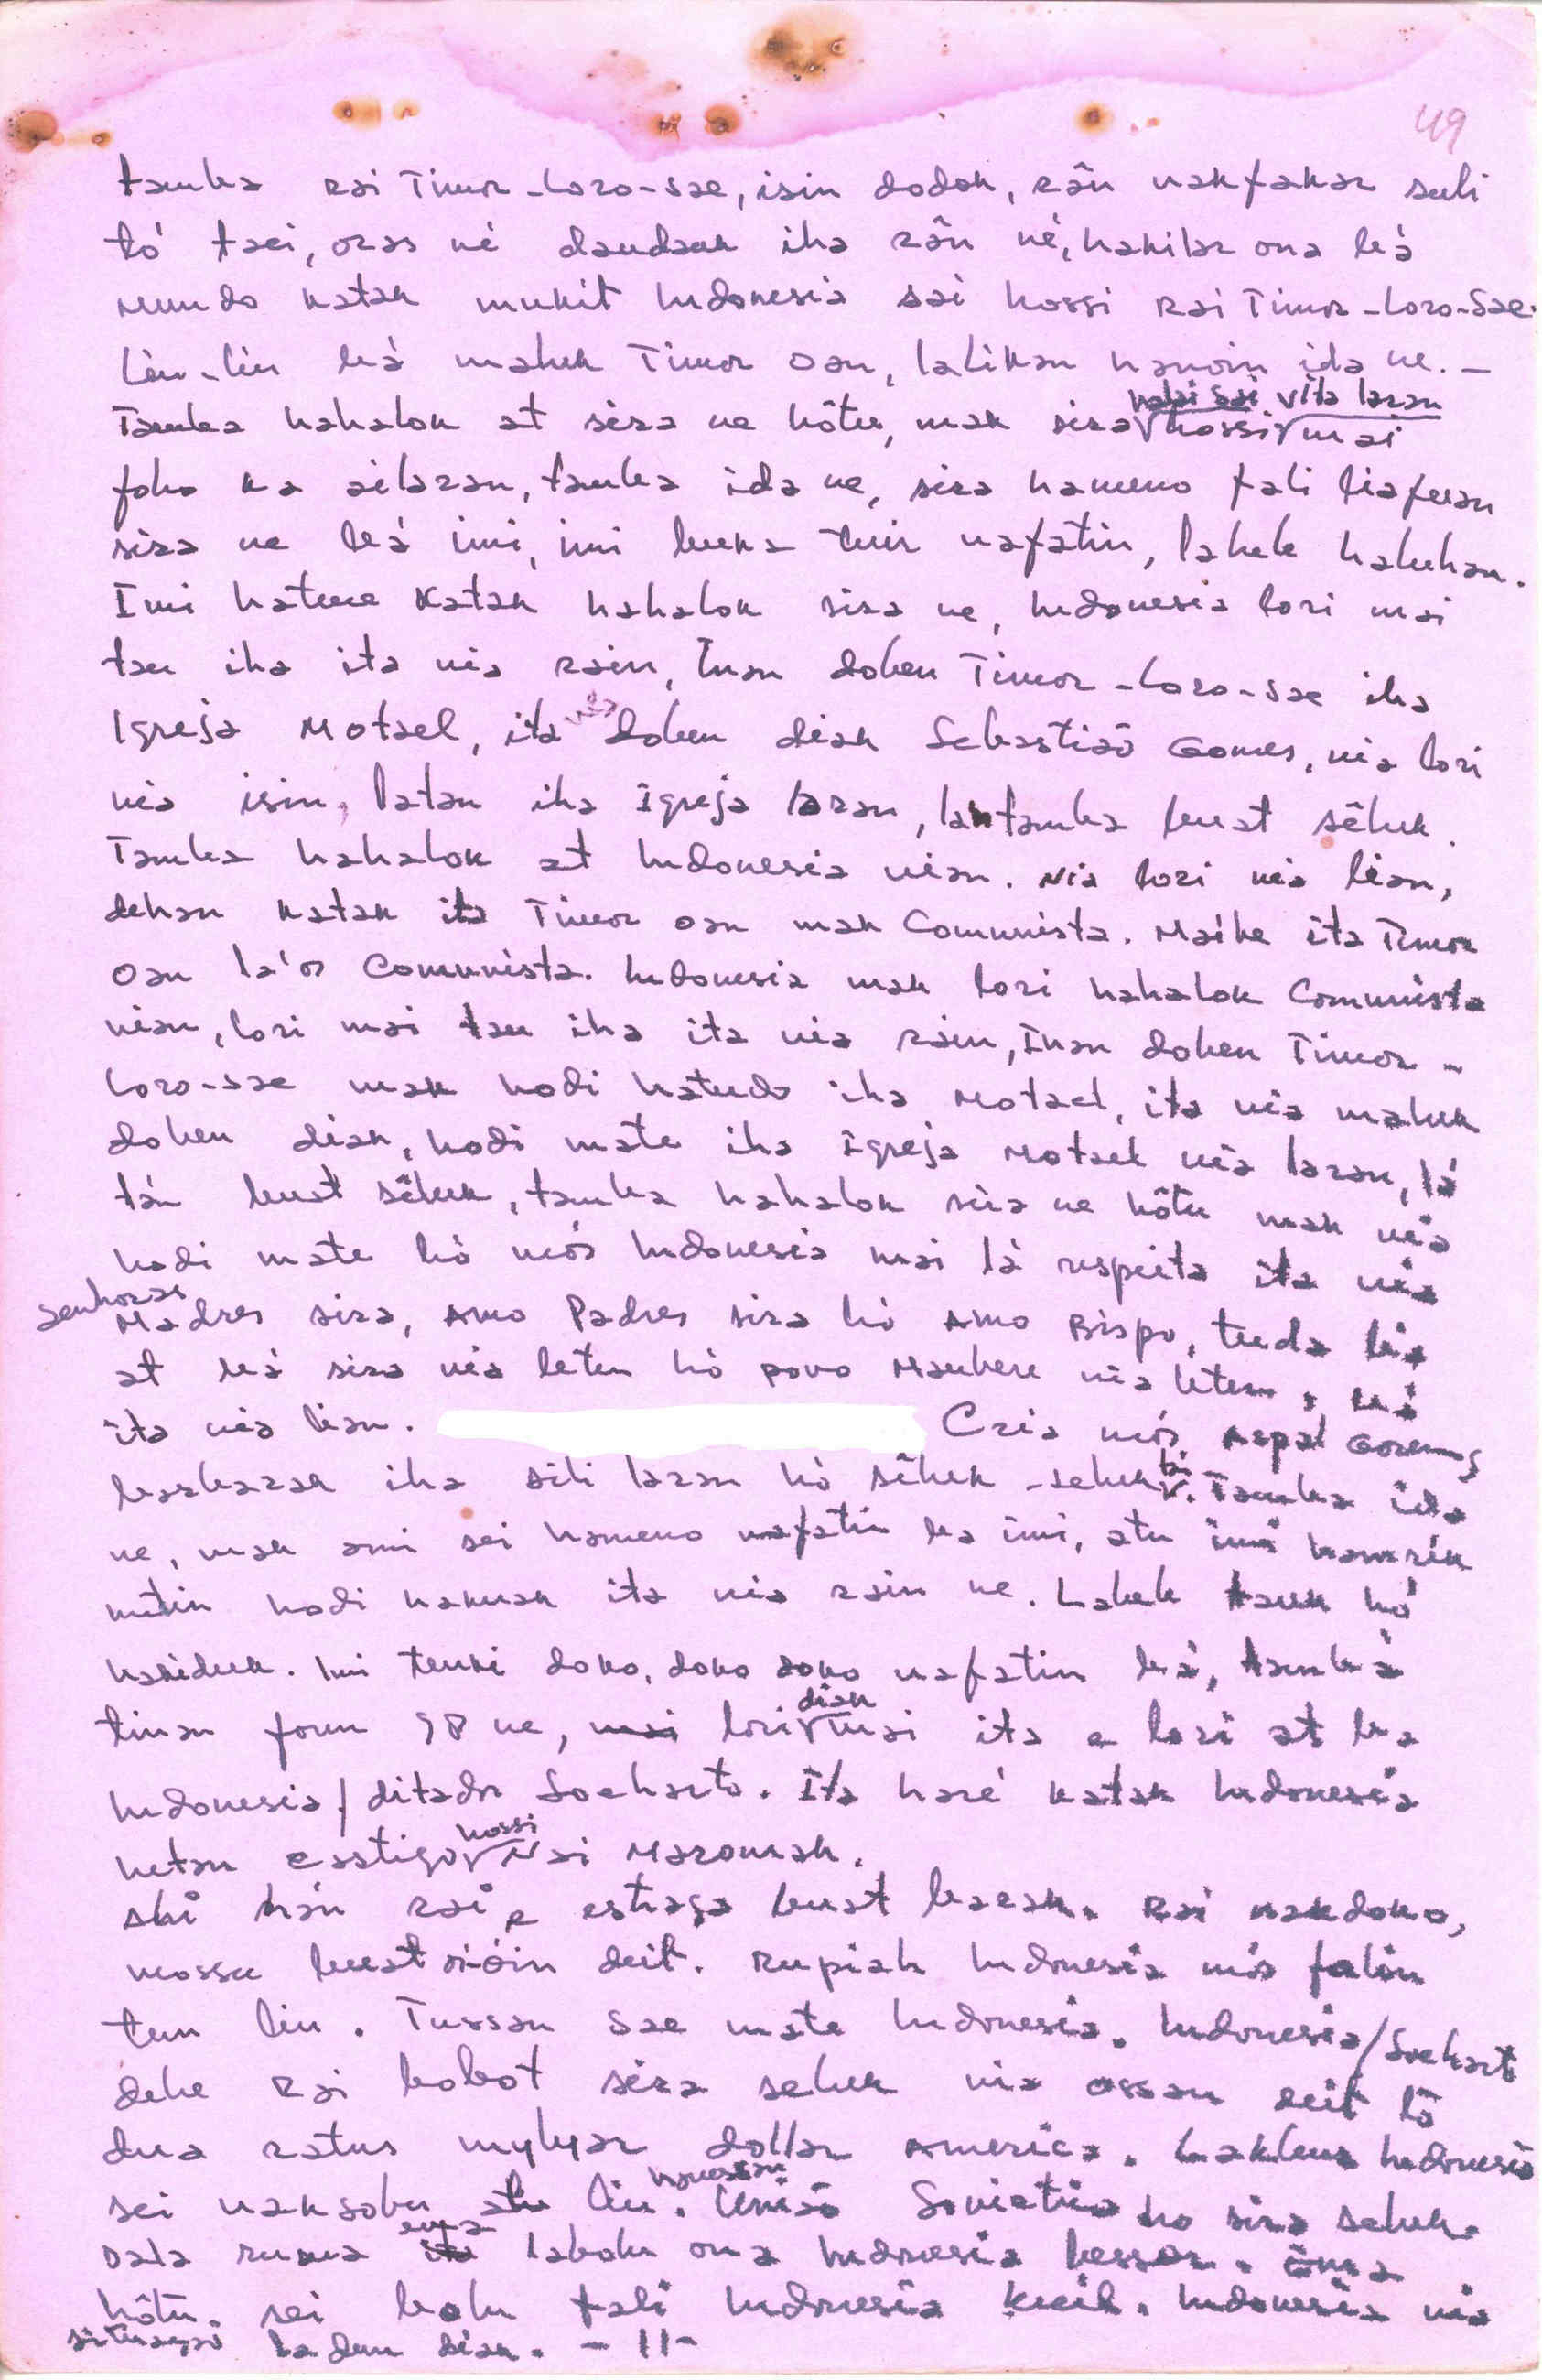 49
tamba rai Timor-Loro-Sae, isin dodok, rân nakfakar suli
tó tasi, oras né daudauk iha rân né, hakilar ona bá
Mundo katak mukit Indonesia sai hossi rai Timor-Loro-Sae.
Liu-liu bá maluk Timor oan, labikan hanoin ida ne. -
Tamba hahalok at sira ne hôtu, mak sira halai sai hossi vila laran mai
foho ka ailaran, tamba ida ne, sira hameno fali liafuan
sira ne bá imi, imi buka tuir nafatin, labele haluhan.
Imi hatene katak hahalok sira ne, Indonesia lori mai
tau iha ita nia rain, Inan doben Timor-Loro-Sae iha
Igreja Motael, ita nia doben diak Sebastião Gomes, nia lori
nia isin, latan iha igreja laran, la tamba buat sêluk.
Tamba hahalok at Indonesia nian. Nia lori nia lian,
dehan katak ita Timor oan mak Comunista. Maibe ita Timor
oan la'os Comunista. Indonesia mak lori hahalok Communista
nian, lori mai tau iha ita nia rain, Inan doben Timor-
Loro-sae mak hodi hatudo iha Motael, ita nia maluk
doben diak, hodi mate iha igreja Motael nia laran, lá
tán buat sêluk, tamba hahalok sira ne hôtu mak nia
hodi mate hó mós Indonesia mai lá respeita ita nia
Senhoras Madres sira, Amo Padres sira hó Amo Bispo, tuda lia
at bá sira nia leten hó povo Maubere nia leten, bá
ita nia lian. Cria mós Aspal Goremos
barbarak iha sidi laran hó sêluk-seluk tan. Tamba ida
ne, mak ami sei hameno nafatin ba imi, atu imi hamrik
metin hodi hakuak ita nia rain ne. Labele tauk hó
hakiduk. Imi tenki doko, doko doko nafatin bá, tamba
tinan foun 98 ne, mai lori diak mai ita e lori at ba
Indonesia/ditador Soeharto. Ita haré katak Indonesia
hetan castigo hossi Nai Maromak.
Ahi hán rai, e estraga buat barak. Rai nakdoko,
mossu buat oióin deit. Rupiah Indonesia mós folin
tun liu. Tussan sae mate Indonesia. Indonesia/Soeharto
dehe rai bobot sira seluk nia ossan deit tó
dua ratus mylyar dollar America. Lakleur Indonesia
sei naksobu atu liu. hanessan União Sovietica ho sira seluk.
Dala ruma ema labolu ona Indonesia bessar. Ema
hôtu. sei bolu fali Indonesia kecil. Indonesia nia
situação la dun diak. -11-